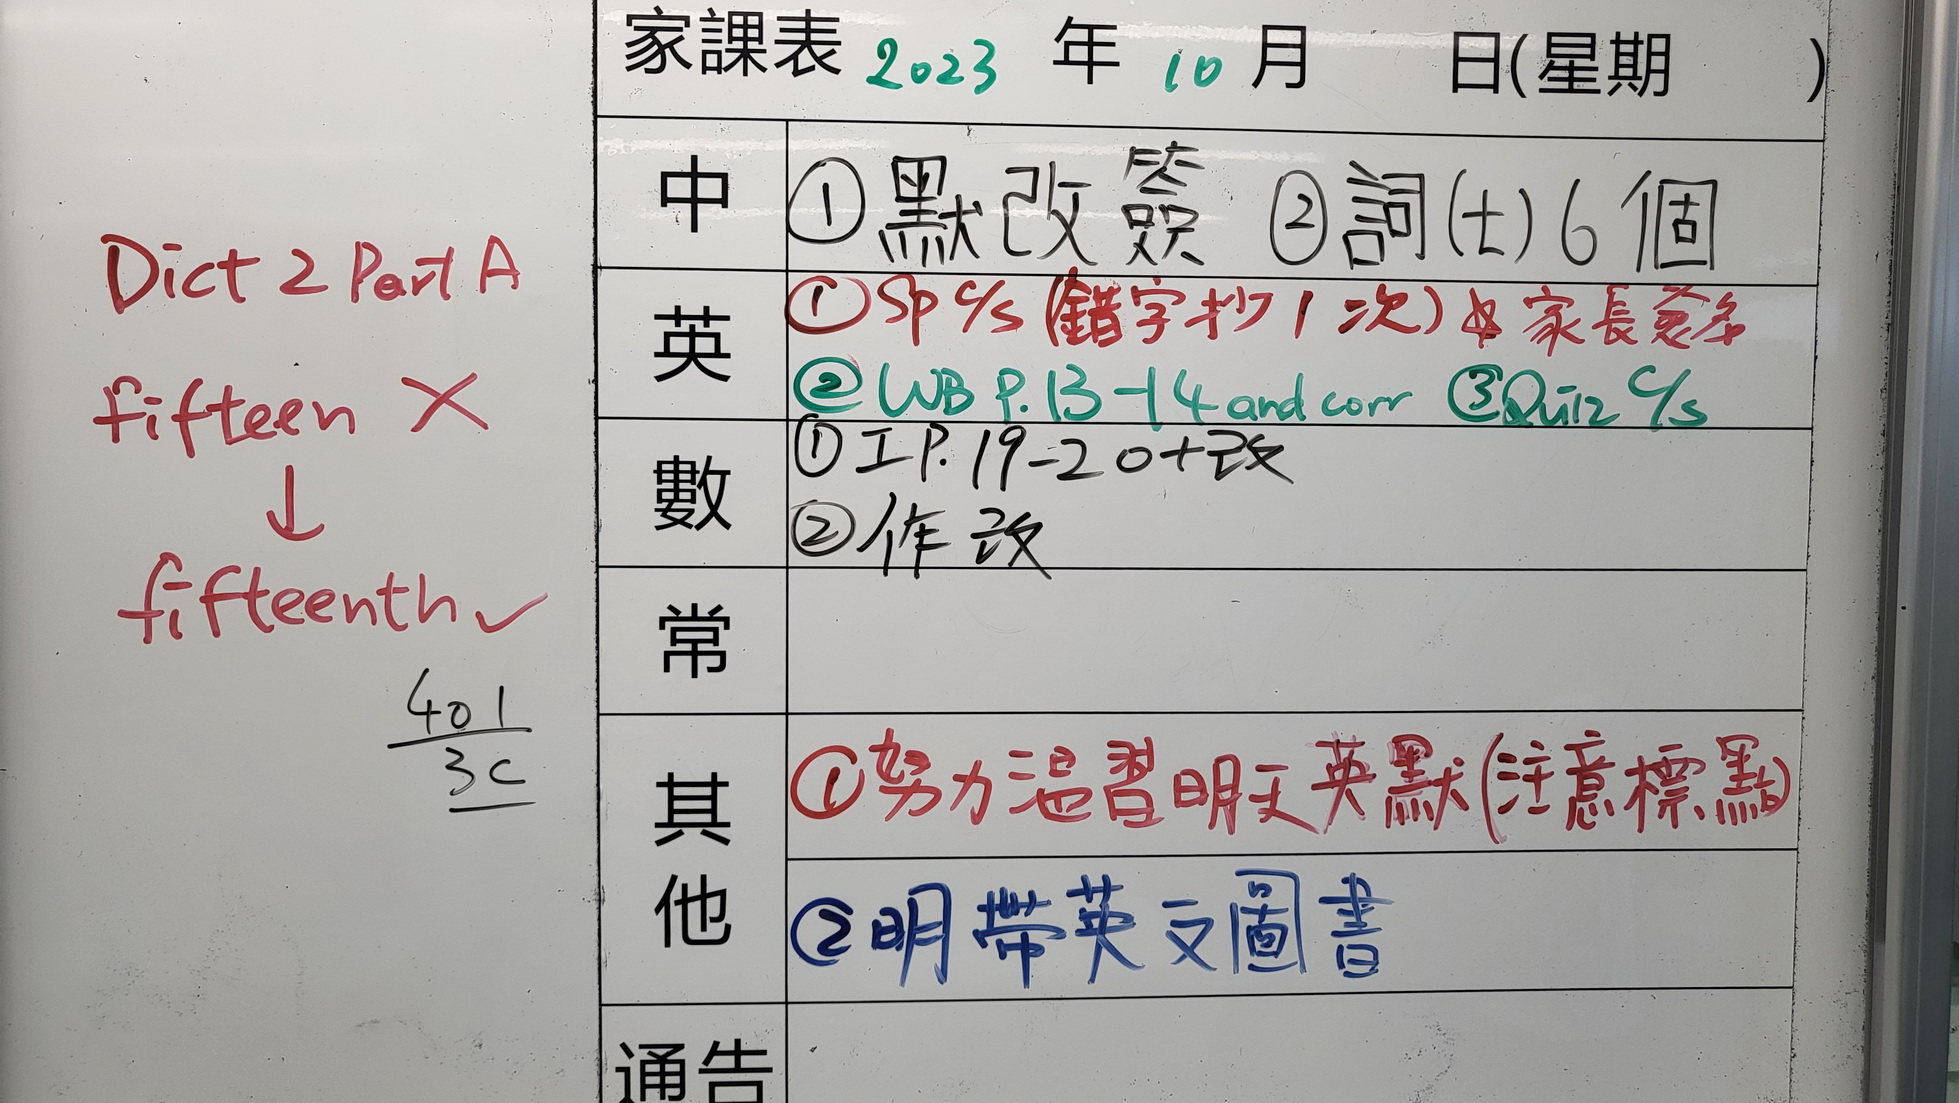 家課表 2023 年 10 月 日(星期 )
中 ①默改簽 ②詞(七)6個
英 ①Sp c/s (錯字抄1次) 家長簽名
②WB P.13-14 and corr ③Quiz c/s
數 ①工P.19-20+改
②作改
常
其他 ①努力溫習明天英默(注意標點)
②明帶英文圖書
通告
Dict 2 Part A
fifteen ✗
↓
fifteenth ✓
401
3C